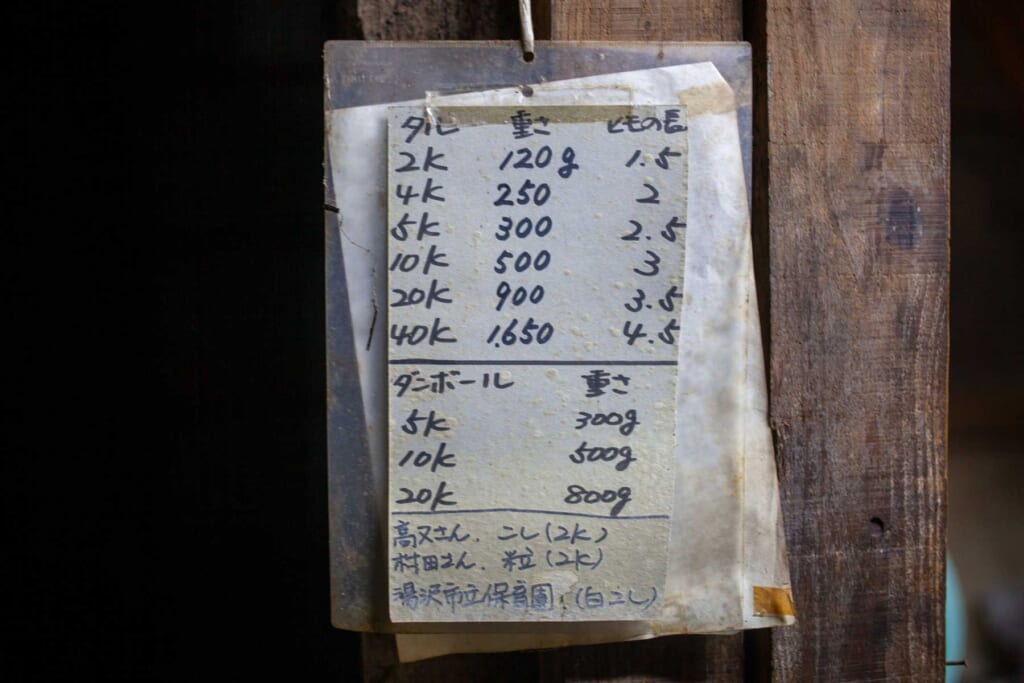 タル 重さ ヒモの長
2K 120g 1.5
4K 250 2
5K 300 2.5
10K 500 3
20K 900 3.5
40K 1.650 4.5
ダンボール 重さ
5K 300g
10K 500g
20K 800g
高又さん. こし(2K)
村田さん. 粒(2K)
湯沢市立保育園.(白こし)